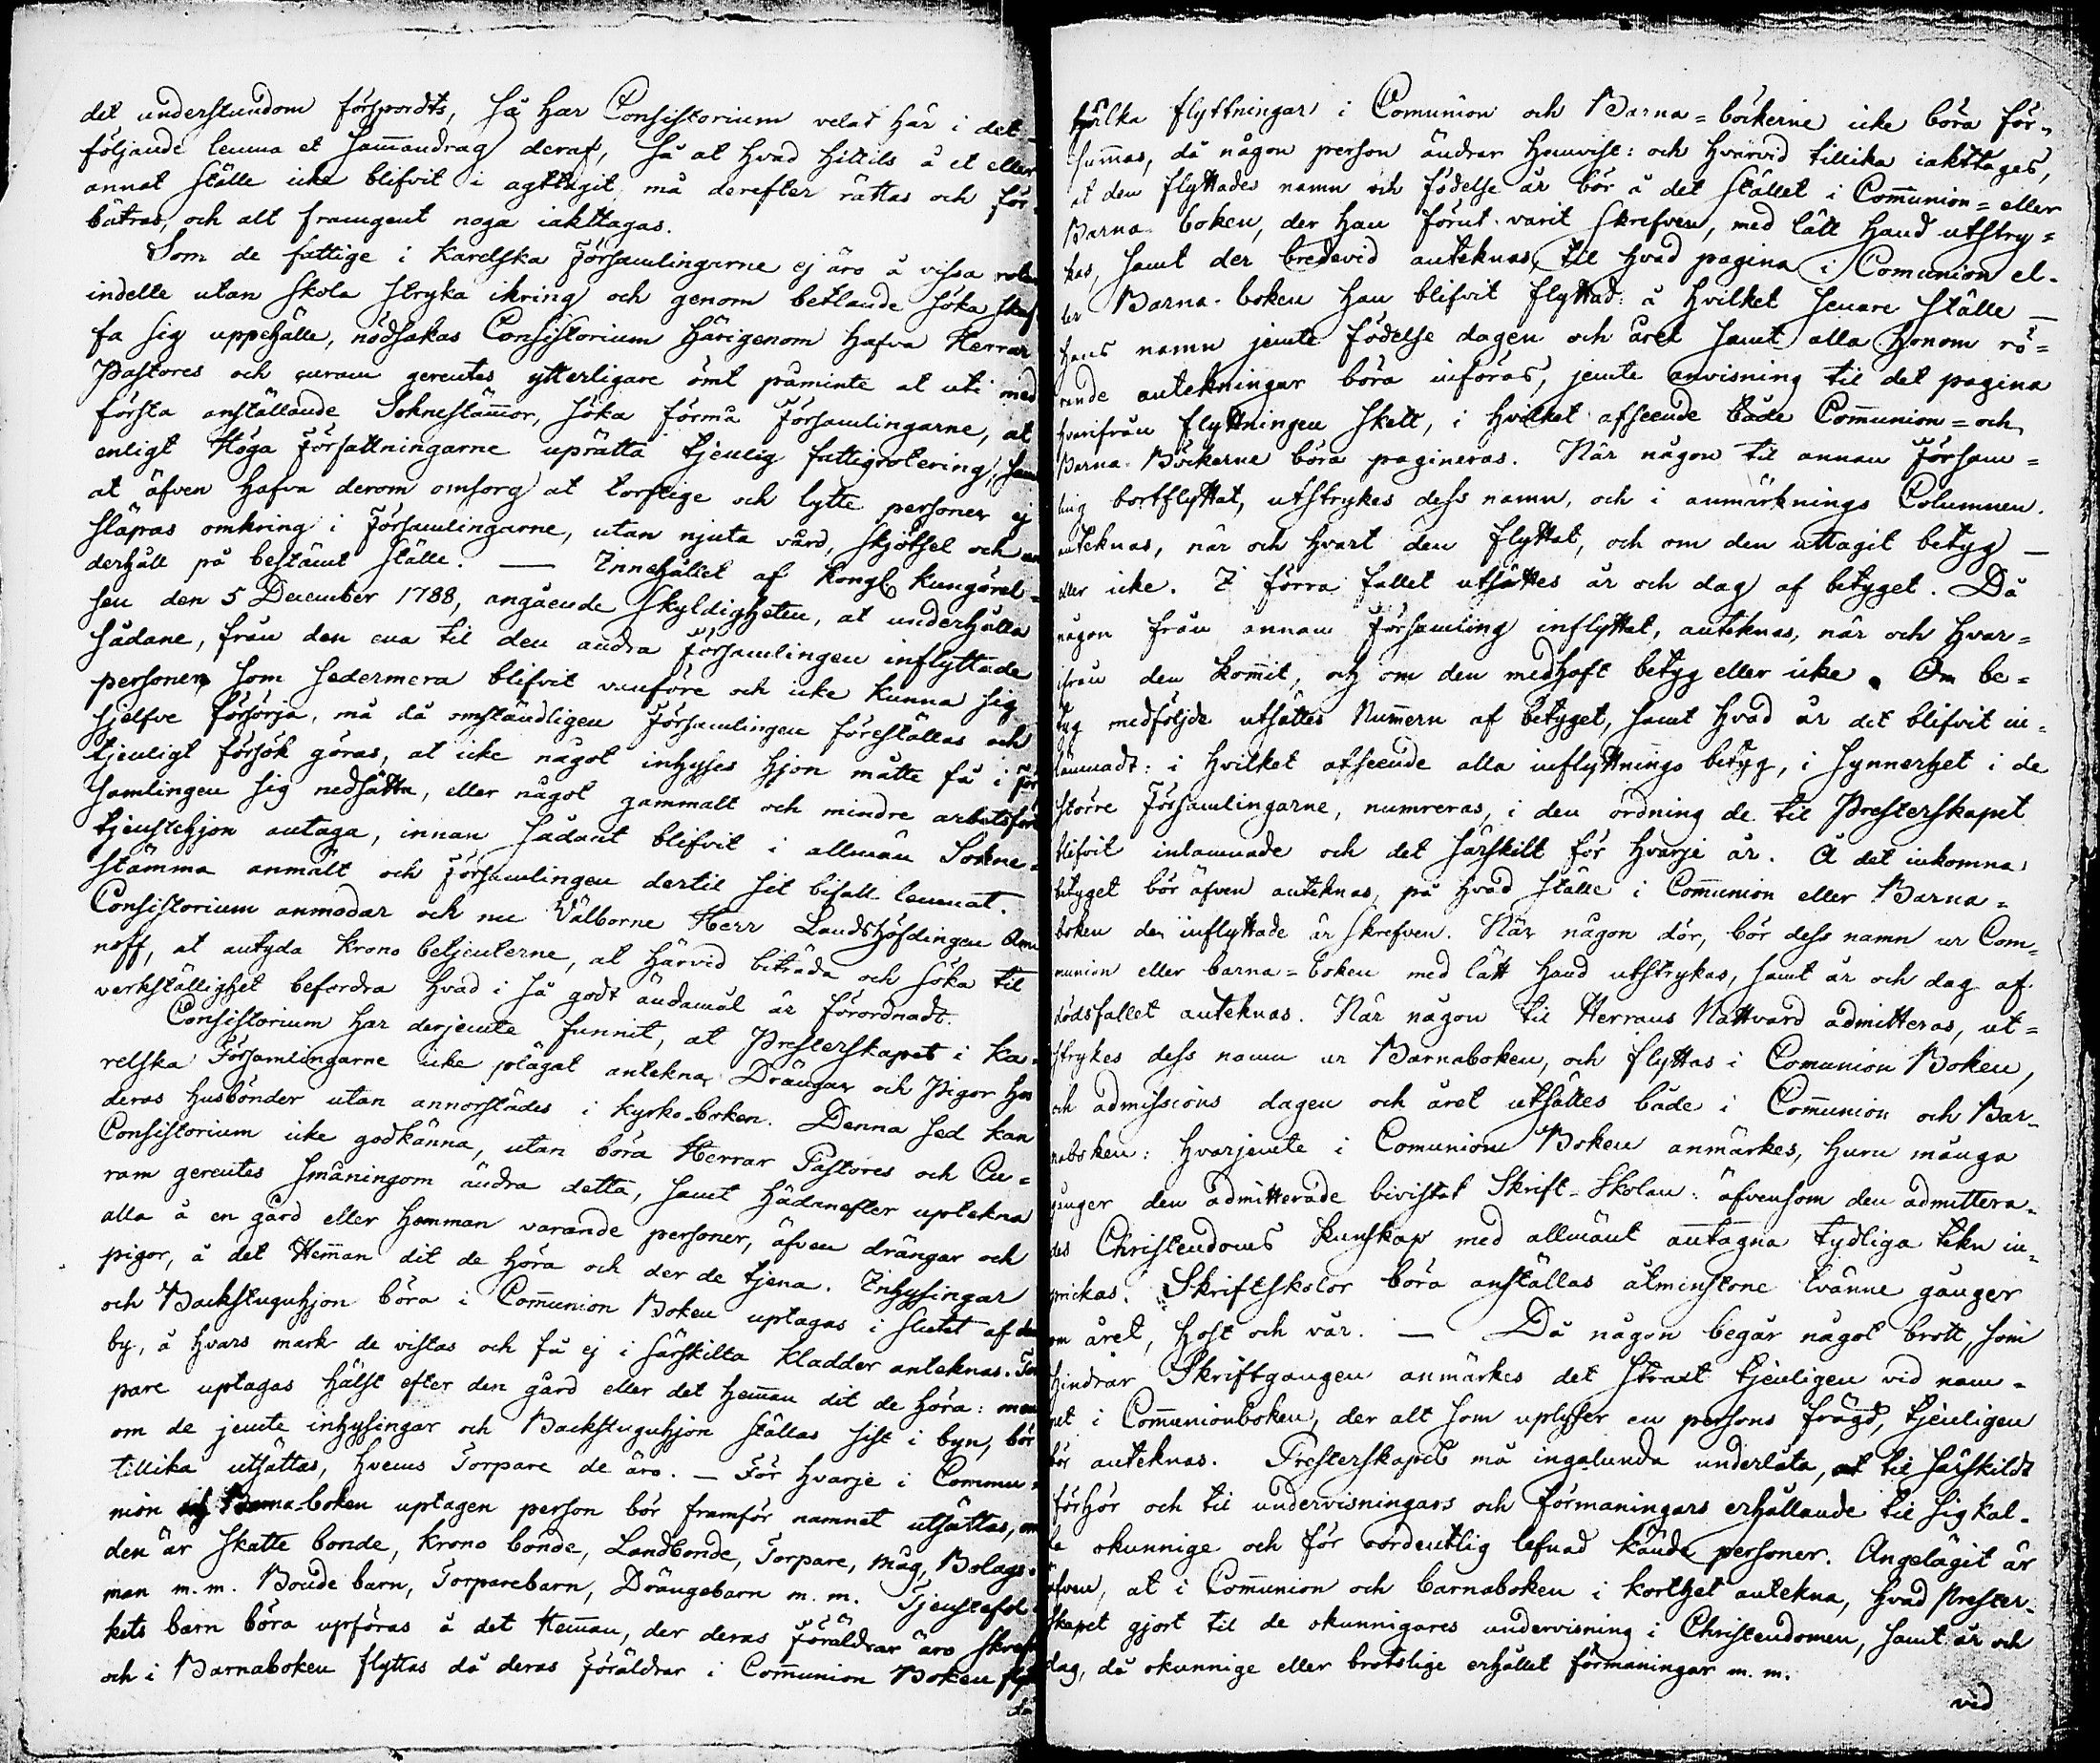 det understundom förspordts, så har Consistorium velat här i det
följande lemna et sam̄andrag deraf, så at hvad hitils å et eller
annat ställe icke blifvit i agttagit må derefter rättas och för-
bätras, och alt framgent noga iakttagas.
Som de fattige i Karelska Församlingarne ej äro å vissa rotar
indelte utan skola stryka ikring och genom betlande söka skaf
fa sig uppehälle, nödsakas Consistorium härigenom hafva Herrar
Pastores och curam gerentes ytterligare ömt påminte at uti med
första anställande Sokneståm̄or, söka förmå Församlingarne, at
enligt Höga Författningarne uprätta tjenlig fattigrotering, samt
at äfven hafva derom omsorg at torftige och lytte personer ej
släpas omkring i Församlingarne, utan njuta vård, skjötsel och un
derhåll på bestämt ställe. — Innehållet af Kongl. Kungörel-
sen den 5 December 1788, angående skyldigheten, at underhålla
sådane, från den ena til den andra Församlingen inflyttade
personer som sedermera blifvit vanföre och icke kunna sig
sjelfve försörja, må då omständligen Församlingen föreställas och
tjenligt försök göras, at icke något inhyses hjon måtte få i För
samlingen sig nedsätta, eller något gammalt och mindre arbetsfört
tjenstehjon antaga, innan sådant blifvit i allmän Sokne-
stämma anmält och Församlingen dertil sit bifall lemnat.
Consistorium anmodar och nu Välborne Herr Landshöfdingen
noff, at antyda krono betjenterne, at härvid biträda och söka til
verkställighet befordra hvad i så godt ändamål är förordnadt.
Consistorium har derjemte funnit, at Presterskapet i Ka-
relska Församlingarne icke plägat anteckna Drängar och Pigor hos
deras husbönder utan annorstädes i Kyrko-boken. Denna sed kan
Consistorium icke godkänna, utan böra Herrar Pastores och Cu-
ram gerentes småningom ändra detta, samt hädanefter uptekna
alla å en gård eller Hemman varande personer, äfven drängar och
pigor, å det Hem̄an dit de höra och der de tjena. Inhysingar
och Backstuguhjon böra i Com̄union Boken uptagas i slutet af den
by, å hvars mark de vistas och få ej i särskilta kladdar anteknas. Tor
pare uptagas hälst efter den gård eller det hem̄an dit de höra: men
om de jemte inhysingar och Backstuguhjon ställas sist i byn, bör
tillika utsättas, hvems Torpare de äro. — För hvarje i Commu-
nion och Barna boken uptagen person bör framför namnet utsättas, om
den är skatte bonde, krono bonde, Landbonde, Torpare, Måg, Bolags-
man m.m. Bonde barn, Torparebarn, Drängabarn m.m. Tjenstefol-
kets barn böra upföras å det Hem̄an, der deras Föräldrar äro skrefne
och i Barnaboken flyttas då deras Föräldrar i Com̄union Boken flyt
ta
hvilka flyttningar i Comunion och Barna-böckerne icke böra för-
sum̄as, då någon person ändrar hemvist: och hvarvid tillika iakttages,
at den flyttades namn och födelse år bör å det stället i Com̄union- eller
Barna boken, der han förut varit skrefven, med lätt hand utstry-
kas, samt der bredevid anteknas, til hvad pagina i Comunion el-
ler Barna-boken han blifvit flyttad: å hvilket senare ställe —
hans namn jemte födelse dagen och året samt alla honom rö-
rande antekningar böra införas, jemte anvisning til det pagina
hvarifrån flyttningen skett, i hvilket afseende både Com̄union- och
Barna-Böckerne böra pagineras. När någon til annan Försam-
ling bortflyttat, utstrykes dess namn, och i anmärknings Columnen.
anteknas, när och hvart den flyttat, och om den uttagit betyg —
eller icke. I förra fallet utsättes år och dag af betyget. Då
någon från annan Församling inflyttat, anteknas, när och hvar-
ifrån den kom̄it, och om den medhaft betyg eller icke. Om be-
tyg medföljde utsättes Num̄ern af betyget, samt hvad år det blifvit in-
lämnadt: i hvilket afseende alla inflyttnings betyg, i synnerhet i de
större Församlingarne, numreras, i den ordning de til Presterskapet
blifvit inlämnade och det särskilt för hvarje år. Å det inkomna
betyget bör äfven anteknas, på hvad ställe i Com̄union eller Barna-
boken den inflyttade är skrefven. När någon dör, bör dess namn ur Com-
munion eller barna-boken med lätt hand utstrykas, samt år och dag af
dödsfallet anteknas. När någon til Herrans Nattvard admitteras, ut-
strykes dess namn ur Barnaboken, och flyttas i Comunion Boken,
och admissions dagen och året utsättes både i Com̄union och Bar-
naboken: hvarjemte i Comunion Boken anmärkes, huru många
gånger den admitterade bivistat Skrift-Skolan: äfvensom den admittera-
des Christendoms kunskap med allmänt antagna tydliga tekn in-
prickas. Skriftskolor böra anställas åtminstone tvänne gånger
om året, höst och vår. — Då någon begår något brott, som
hindrar Skriftgången anmärkes det straxt tjenligen vid nam-
net i Com̄unionboken, der alt som uplyser en persons frägd, tjenligen
bör anteknas. Presterskapet må ingalunda underlåta, at til särskildt
förhör och til undervisningars och förmaningars erhållande til sig kal-
la okunnige och för oordentlig lefnad kände personer. Angelägit är
äfven, at i Com̄union och barnaboken i korthet antekna, hvad Prester-
skapet gjort til de okunnigares undervisning i Christendomen, samt år och
dag, då okunnige eller brotslige erhållet förmaningar m.m.
ved